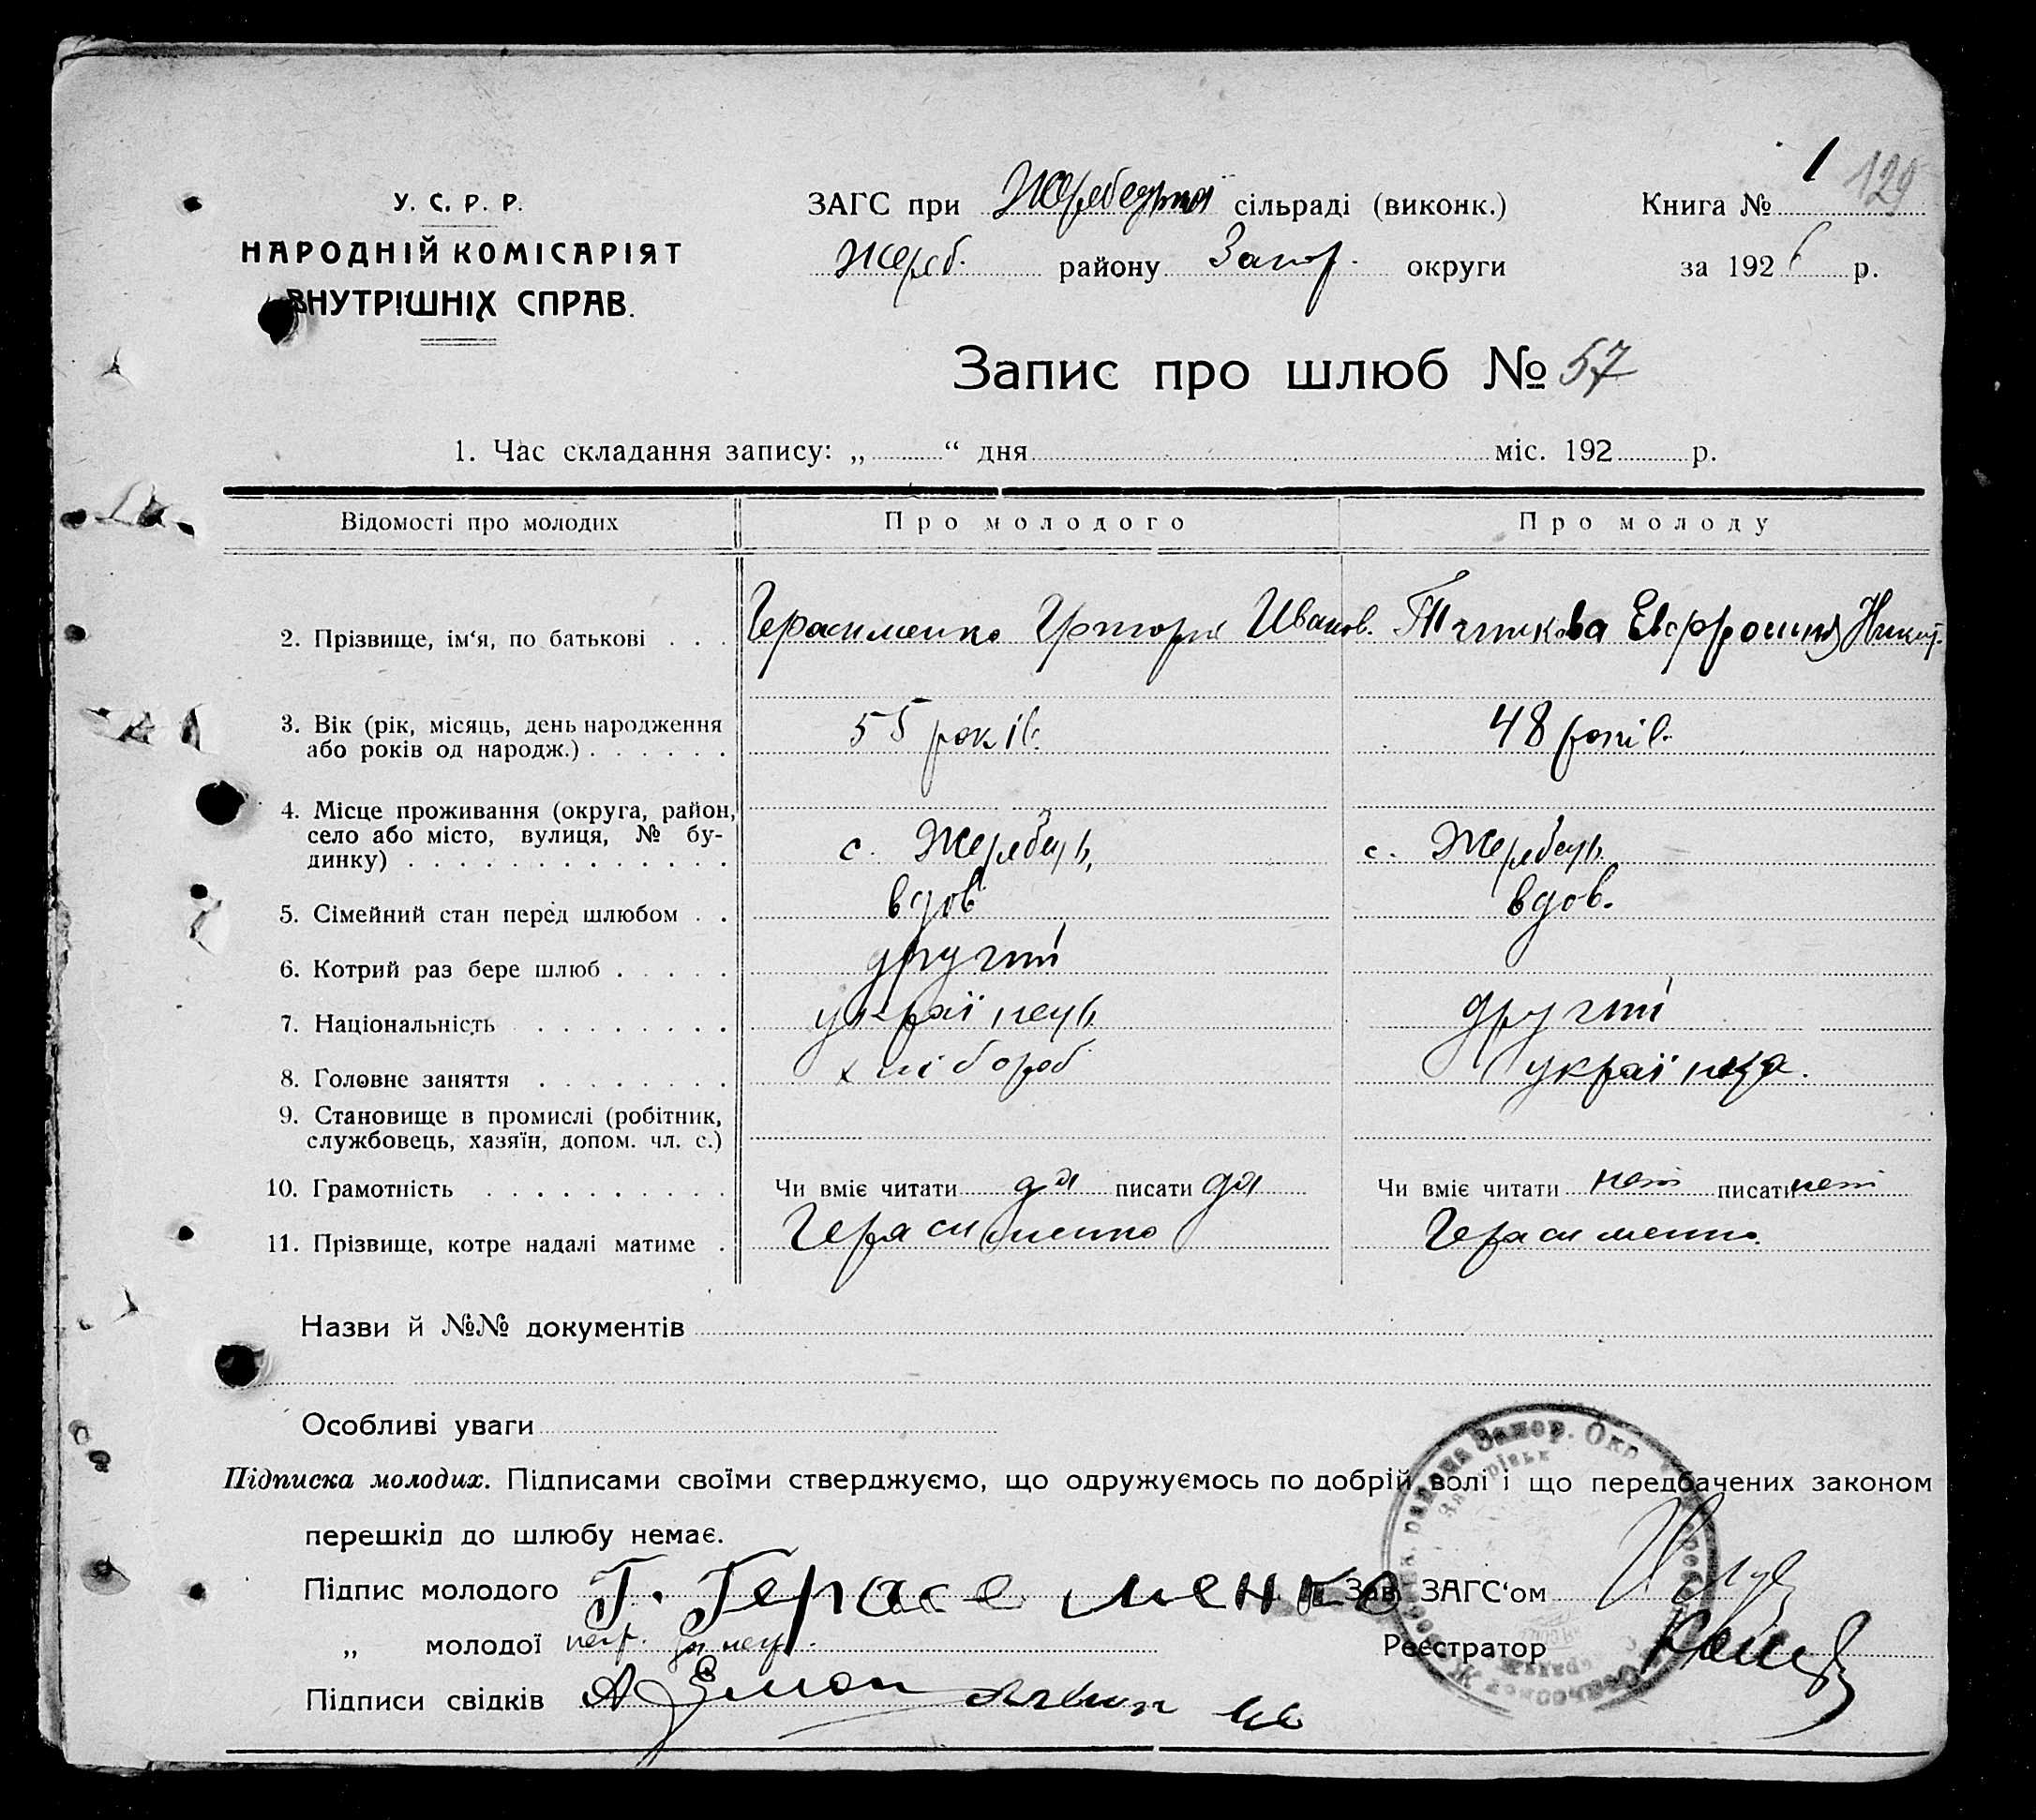 1 129
У. С. Р. Р.
НАРОДНІЙ КОМІСАРІЯТ
ВНУТРІШНІХ СПРАВ.
ЗАГС при Жеребецькій сільраді (виконк.) Книга №
Жереб. району Запор. округи за 1926 р.
Запис про шлюб № 57
1. Час складання запису: „ “ дня міс. 192 р.
Відомості про молодих Про молодого Про молоду
2. Прізвище, ім‘я, по батькові . . . Герасименко Григорій Иванов. Евфросиния Никит.
3. Вік (рік, місяць, день народження
або років од народж.) . . . . . . 55 років. 48 років.
4. Місце проживання (округа, район,
село або місто, вулиця, № бу-
динку) . . . . . . . . . . . . . с. Жеребець с. Жеребець
5. Сімейний стан перед шлюбом . . вдов вдов.
6. Котрий раз бере шлюб . . . . . другий
7. Національність . . . . . . . . українець другий
8. Головне заняття . . . . . . . . хлібороб українка.
9. Становище в промислі (робітник,
службовець, хазяїн, допом. чл. с.)
10. Грамотність . . . . . . . . . . Чи вміє читати да писати да Чи вміє читати нет писати нет
11. Прізвище, котре надалі матиме . Герасименко Герасименко.
Назви й №№ документів
Особливі уваги
Підписка молодих. Підписами своїми стверджуємо, що одружуємось по добрій волі і що передбачених законом
перешкід до шлюбу немає.
Підпис молодого Г. Герасеменко Зав. ЗАГС‘ом
„ молодої негр. Реєстратор
Підписи свідків
района Запор. Окр.